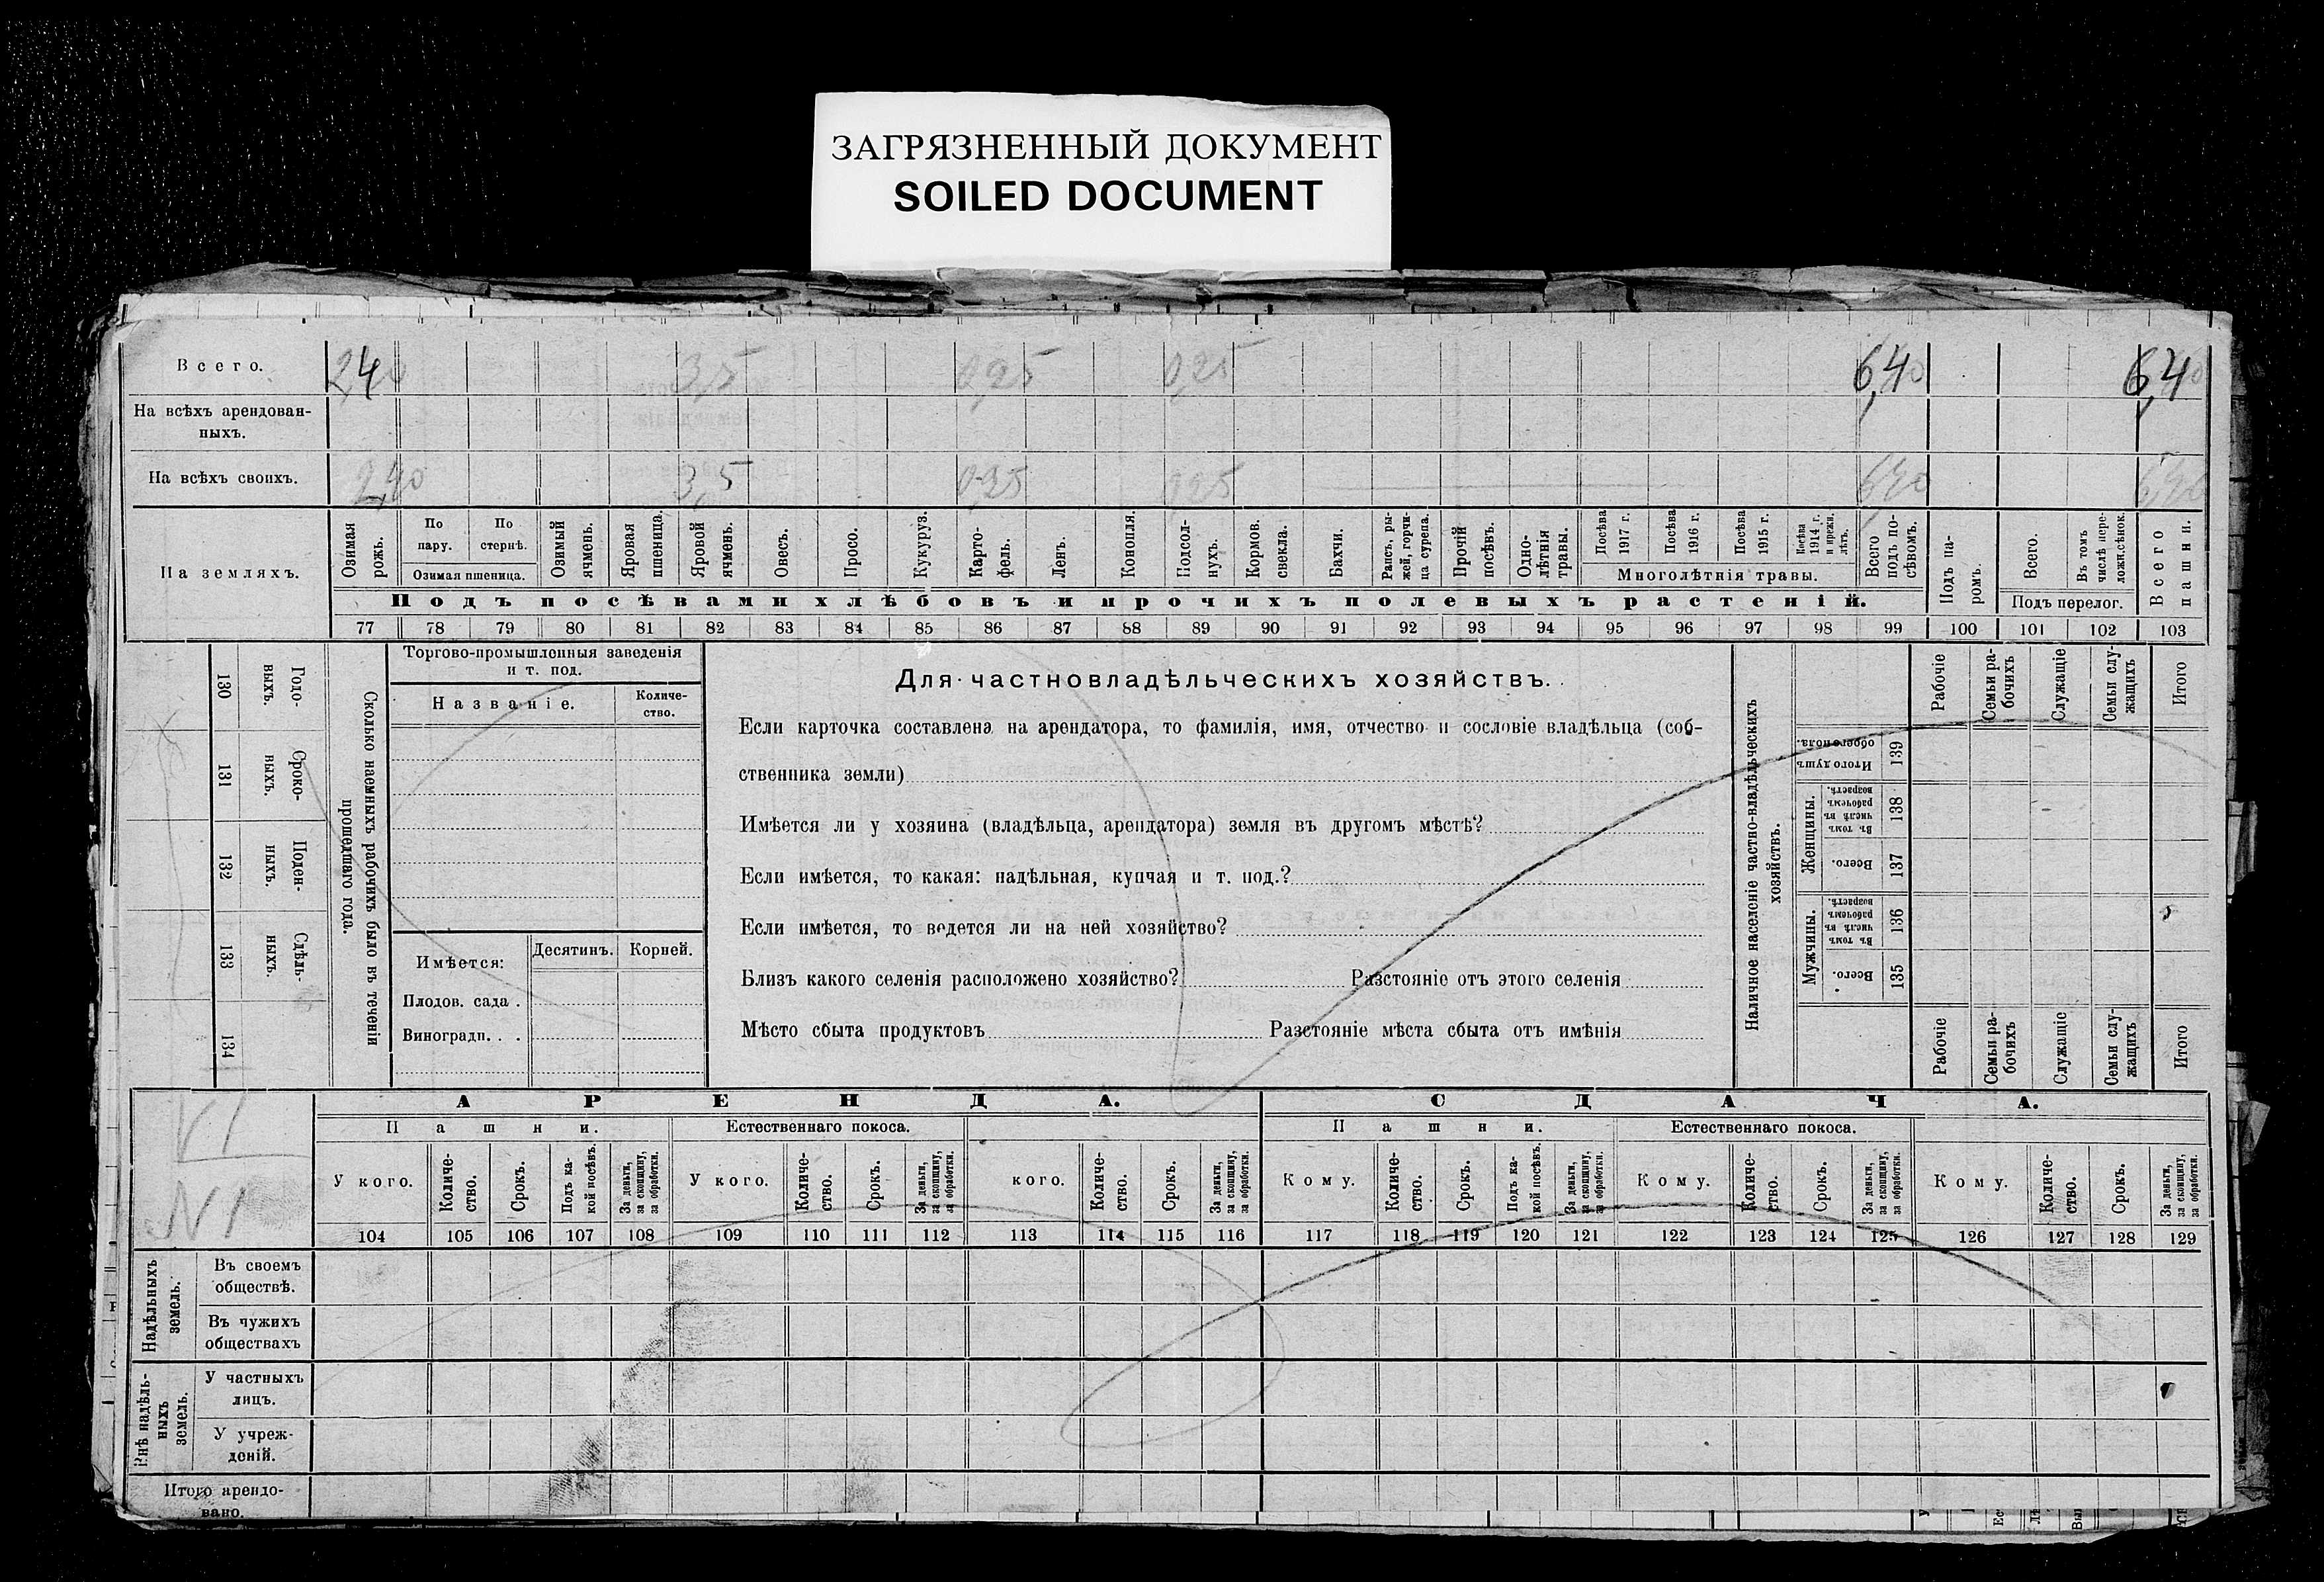 ЗАГРЯЗНЕННЫЙ ДОКУМЕНТ
SOILED DOCUMENT
Всего. 24 3,5 0,25 0,25 6,40 6,40
На всѣхъ арендован-
ныхъ.
На всѣхъ своихъ. 2,40 3,5 0,25 0,25 6,40 6,40
На земляхъ.
Озимая рожь.
По пару.
По стернѣ.
Озимая пшеница.
Озимый ячмень.
Яровая пшеница.
Яровой ячмень.
Овесъ.
Просо.
Кукуруз.
Карто-
фель.
Ленъ.
Конопля.
Подсол-
нухъ.
Кормов. свекла.
Бахчи.
Рапсъ, ры-
жей, горчи-
ца сурепа.
Прочій посѣвъ.
Одно-
лѣтнія травы.
Посѣва 1917 г.
Посѣва 1916 г.
Посѣва 1915 г.
Посѣва 1914 г. и прежн. лѣтъ.
Многолѣтнія травы.
Всего подъ по-
сѣвомъ.
Подъ па-
ромъ.
Всего.
Въ томъ числѣ пере-
ложн.сѣнок.
Подъ перелог.
Всего пашни.
Подъ посѣвами хлѣбовъ и прочихъ полевыхъ растеній.
77 78 79 80 81 82 83 84 85 86 87 88 89 90 91 92 93 94 95 96 97 98 99 100 101 102 103
Годо-
выхъ.
130
Сроко-
ныхъ.
131
Поден-
ныхъ.
132
Сдѣль-
ныхъ.
133
134
Сколько наемныхъ рабочихъ было въ теченіи
прошедшаго года.
Торгово-промышленныя заведенія
и т. под.
Названіе.
Количе-
ство.
Имѣется:
Десятинъ.
Корней.
Плодов. сада .
Виноградн. . .
Для частновладѣльческихъ хозяйствъ.
Если карточка составлена на арендатора, то фамилія, имя, отчество и сословіе владѣльца (соб-
ственника земли)
Имѣется ли у хозяина (владѣльца, арендатора) земля въ другомъ мѣстѣ?
Если имѣется, то какая: надѣльная, купчая и т. под.?
Если имѣется, то ведется ли на ней хозяйство?
Близъ какого селенія расположено хозяйство? Разстояніе отъ этого селенія
Мѣсто сбыта продуктовъ Разстояніе мѣста сбыта отъ имѣнія
Наличное населеніе частно-владѣльческихъ
хозяйствъ.
Рабочіе
Семьи ра-
бочихъ
Служащіе
Семьи слу-
жащихъ
Итого
Итого душъ обоего пола.
139
Женщины.
Въ томъ числѣ въ рабочемъ возрастѣ.
138
Всего.
137
Мужчины.
Въ томъ числѣ въ рабочемъ возрастѣ.
136
Всего.
135
Рабочіе
Семьи ра-
бочихъ
Служащіе
Семьи слу-
жащихъ
Итого
VI
N1
АРЕНДА.
СДАЧА.
Пашни.
Естественнаго покоса.
Пашни.
Естественнаго покоса.
У кого.
Количе-
ство.
Срокъ.
Подъ ка-
кой посѣвъ.
За деньги, за скопщину, за обработки.
У кого.
Количе-
ство.
Срокъ.
За деньги, за скопщину, за обработки.
кого.
Количе-
ство.
Срокъ.
За деньги, за скопщину, за обработки.
Кому.
Количе-
ство.
Срокъ.
Подъ ка-
кой посѣвъ.
За деньги, за скопщину, за обработки.
Кому.
Количе-
ство.
Срокъ.
За деньги, за скопщину, за обработки.
Кому.
Количе-
ство.
Срокъ.
За деньги, за скопщину, за обработки.
104 105 106 107 108 109 110 111 112 113 114 115 116 117 118 119 120 121 122 123 124 125 126 127 128 129
Надѣльныхъ
земель.
Въ своемъ
обществѣ.
Въ чужихъ
обществахъ
Внѣ надѣль-
ныхъ
земель.
У частныхъ
лицъ.
У учреж-
деній.
Итого арендо-
вано.